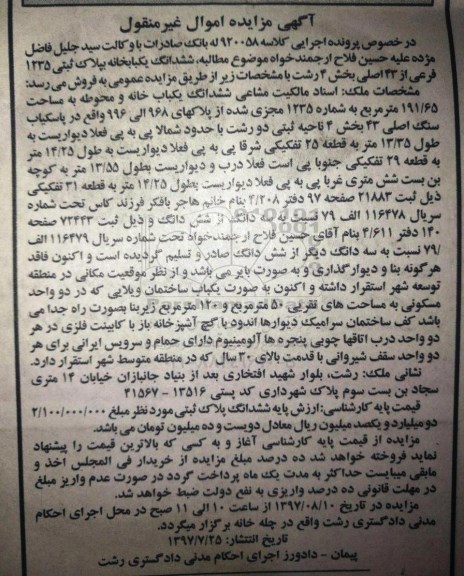 آگهی مزایده اموال غیرمنقول
در خصوص پرونده اجرایی کلاسه ۹۲۰۰۵۸ له بانک صادرات با وکالت سید جلیل فاضل
مژده علیه حسین فلاح ارجمندخواه موضوع مطالبه، ششدانگ یکبابخانه بپلاک ثبتی ۱۲۳۵
فرعی از ۴۳ اصلی بخش ۴ رشت با مشخصات زیر از طریق مزایده عمومی به فروش می رسد:
مشخصات ملک: اسناد مالکیت مشاعی ششدانگ یکباب خانه و محوطه به مساحت
۱۹۱/۶۵ مترمربع به شماره ۱۲۳۵ مجزی شده از پلاکهای ۹۶۸ الی ۹۹۶ واقع در پاسکیاب
سنگ اصلی ۴۳ بخش ۴ ناحیه ثبتی دو رشت با حدود شمالا پی به پی فعلا دیواریست به
طول ۱۳/۳۵ متر به قطعه ۲۵ تفکیکی شرقا پی به پی فعلا دیواریست به طول ۱۴/۲۵ متر
به قطعه ۲۹ تفکیکی جنوبا پی است فعلا درب و دیواریست بطول ۱۳/۵۵ متر به کوچه
بن بست شش متری غربا پی به پی فعلا دیواریست بطول ۱۴/۲۵ متر به قطعه ۳۱ تفکیکی
ذیل ثبت ۲۱۸۸۳ صفحه ۹۷ دفتر ۴/۲۰۸ بنام خانم هاجر بافکر فرزند کاس تحت شماره
سریال ۱۱۶۴۷۸ الف ۷۹ نسبت به سه دانگ از شش دانگ و ذیل ثبت ۷۲۴۴۳ صفحه
۱۴۰ دفتر ۴/۶۱۱ بنام آقای حسین فلاح ارجمندخواه تحت شماره سریال ۱۱۶۴۷۹ الف
۷۹/ نسبت به سه دانگ دیگر از شش دانگ صادر و تسلیم گردیده است و اکنون فاقد
هرگونه بنا و دیوار گذاری و به صورت بایر می باشد و از نظر موقعیت مکانی در منطقه
توسعه شهر استقرار داشته و اکنون به صورت یکباب ساختمان ویلایی که در دو واحد
مسکونی به مساحت های تقریبی ۵۰ مترمربع و ۱۲۰ مترمربع زیربنا بصورت راه جدا می
باشد کف ساختمان سرامیک دیوارها اندود با گچ آشپزخانه باز با کابینت فلزی در هر
دو واحد درب اتاقها چوبی پنجره ها آلومینیوم دارای حمام و سرویس ایرانی برای هر
دو واحد سقف شیروانی با قدمت بالای ۳۰ سال که در منطقه متوسط شهر استقرار دارد.
نشانی ملک: رشت، بلوار شهید افتخاری بعد از بنیاد جانبازان خیابان ۱۴ متری
سجاد بن بست سوم پلاک شهرداری کد پستی ۱۳۵۱۶ - ۴۱۵۶۷
قیمت پایه کارشناسی: ارزش پایه ششدانگ پلاک ثبتی مورد نظر مبلغ ۲/۱۰۰/۰۰۰/۰۰۰
دو میلیارد و یکصد میلیون ریال معادل دویست و ده میلیون تومان می باشد.
مزایده از قیمت پایه کارشناسی آغاز و به کسی که بالاترین قیمت را پیشنهاد
نماید فروخته خواهد شد ده درصد مبلغ مزایده از خریدار فی المجلس اخذ و
مابقی میبایست حداکثر به مدت یک ماه پرداخت گردد در صورت عدم واریز مبلغ
در مهلت قانونی ده درصد واریزی به نفع دولت ضبط خواهد شد.
مزایده در تاریخ ۱۳۹۷/۰۸/۱۰ از ساعت ۱۰ الی ۱۱ صبح در محل اجرای احکام
مدنی دادگستری رشت واقع در چله خانه برگزار میگردد.
تاریخ انتشار: ۱۳۹۷/۷/۲۵
پیمان - دادورز اجرای احکام مدنی دادگستری رشت